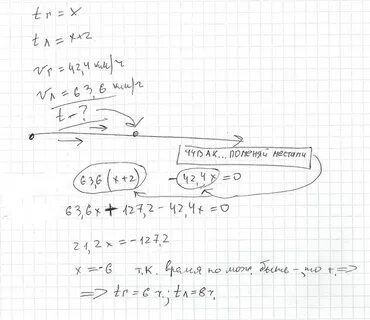 tг = x
tл = x+2
vг = 42,4 км/ч
vл = 63,6 км/ч
t - ?
ЧУВАК... ПОМЕНЯЙ МЕСТАМИ
63,6(x+2) - 42,4x = 0
63,6x + 127,2 - 42,4x = 0
21,2x = -127,2
x = -6 т.к. время не може быть -, то + =>
=> tг = 6 ч.; tл = 8 ч.